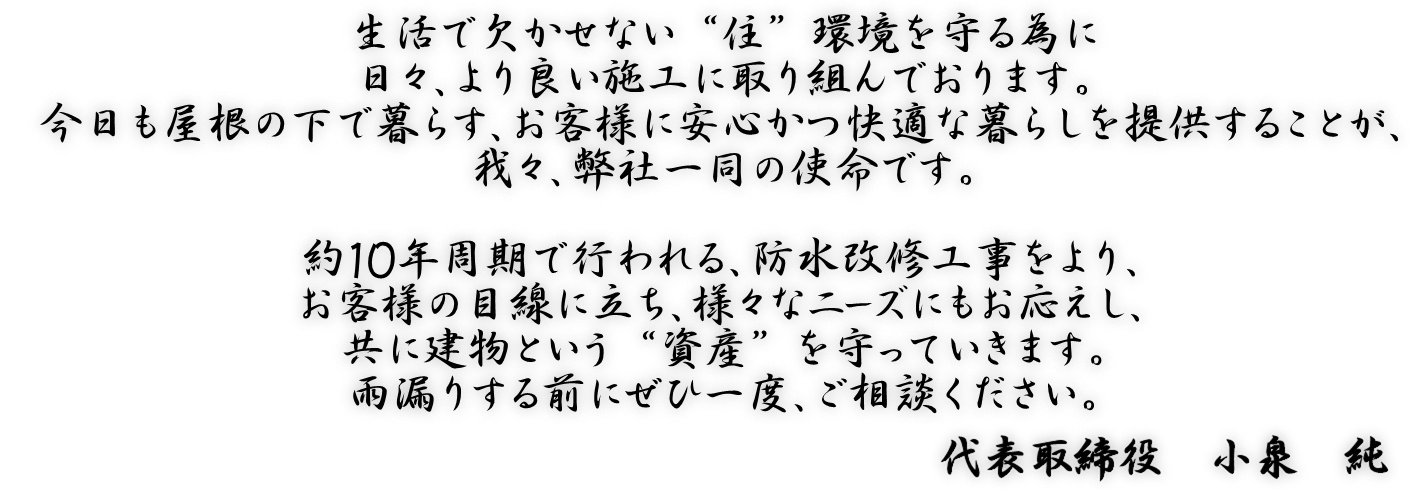 生活で欠かせない“住”環境を守る為に
日々、より良い施工に取り組んでおります。
今日も屋根の下で暮らす、お客様に安心かつ快適な暮らしを提供することが、
我々、弊社一同の使命です。
約10年周期で行われる、防水改修工事をより、
お客様の目線に立ち、様々なニーズにもお応えし、
共に建物という“資産”を守っていきます。
雨漏りする前にぜひ一度、ご相談ください。
代表取締役　小泉　純